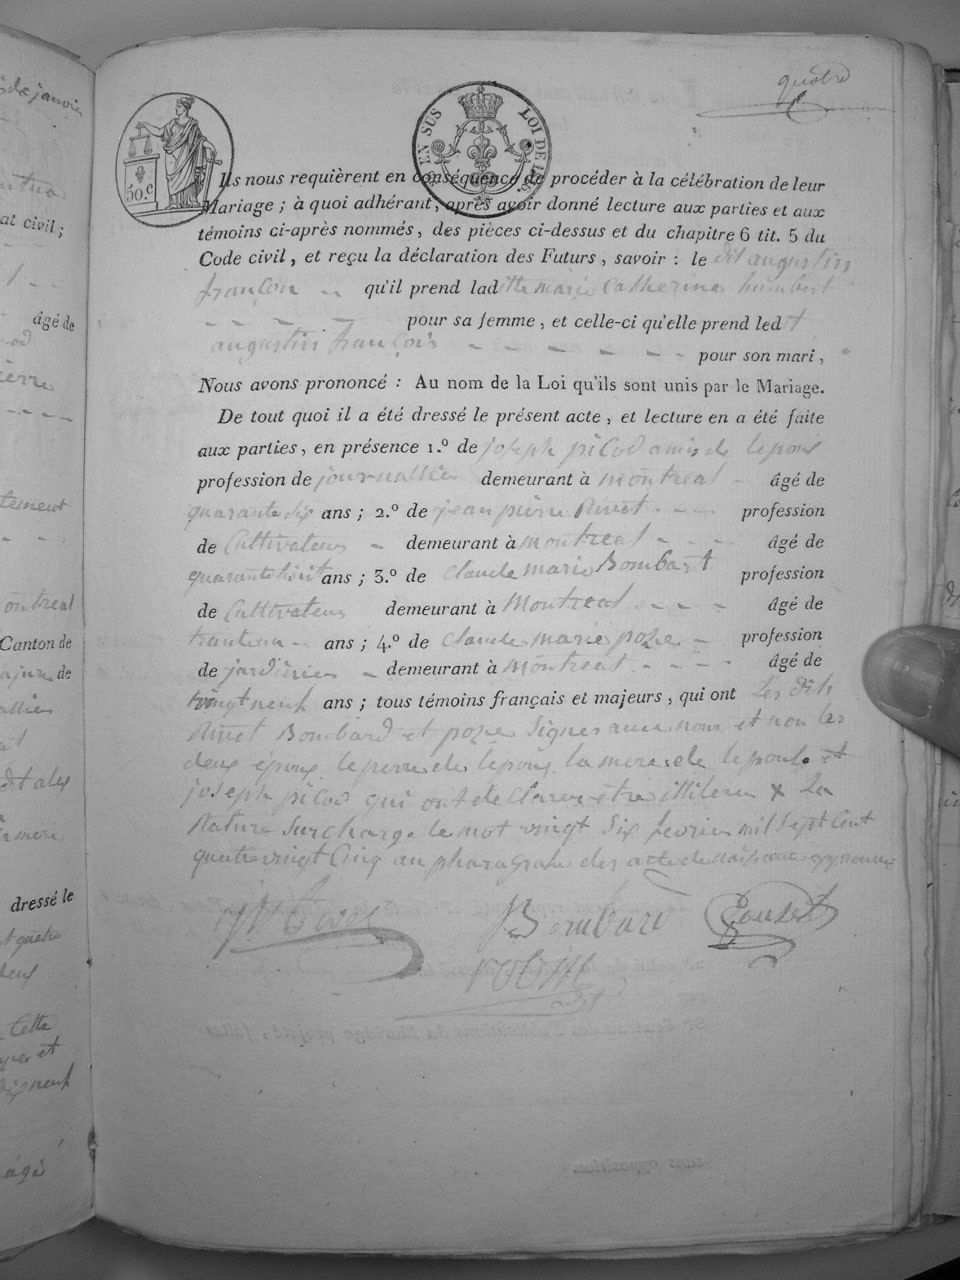 quatre
50.c
EN SUS
LOI DE 18
Ils nous requièrent en conséquence de procéder à la célébration de leur
Mariage ; à quoi adhérant, après avoir donné lecture aux parties et aux
témoins ci-après nommés, des pièces ci-dessus et du chapitre 6 tit. 5 du
Code civil, et reçu la déclaration des Futurs, savoir : le dit augustin
françois qu'il prend ladite marie Catherine humbert
pour sa femme, et celle-ci qu'elle prend ledit
augustin françois pour son mari,
Nous avons prononcé : Au nom de la Loi qu'ils sont unis par le Mariage.
De tout quoi il a été dressé le présent acte, et lecture en a été faite
aux parties, en présence 1.º de joseph picod amis de lepous
profession de journallier demeurant à montreal âgé de
quarante six ans ; 2.º de jean pierre Rivet profession
de Cultivateur demeurant à montreal âgé de
quarante huit ans ; 3.º de Claude marie Bombart profession
de Cultivateur demeurant à Montreal âgé de
ans ; 4.º de Claude marie poze profession
de jardinier demeurant à montreal âgé de
vingt neuf ans ; tous témoins français et majeurs, qui ont Les dits
Rivet Bombard et poze Signés avec nous et non les
deux épous le perre de lepous la mere de lepouse et
joseph picod qui ont declarer être La
Rature Surcharge le mot vingt Six fevrier mil Sept Cent
quatre vingt Cinq au pharagrafe des acte de naissance
Bombard